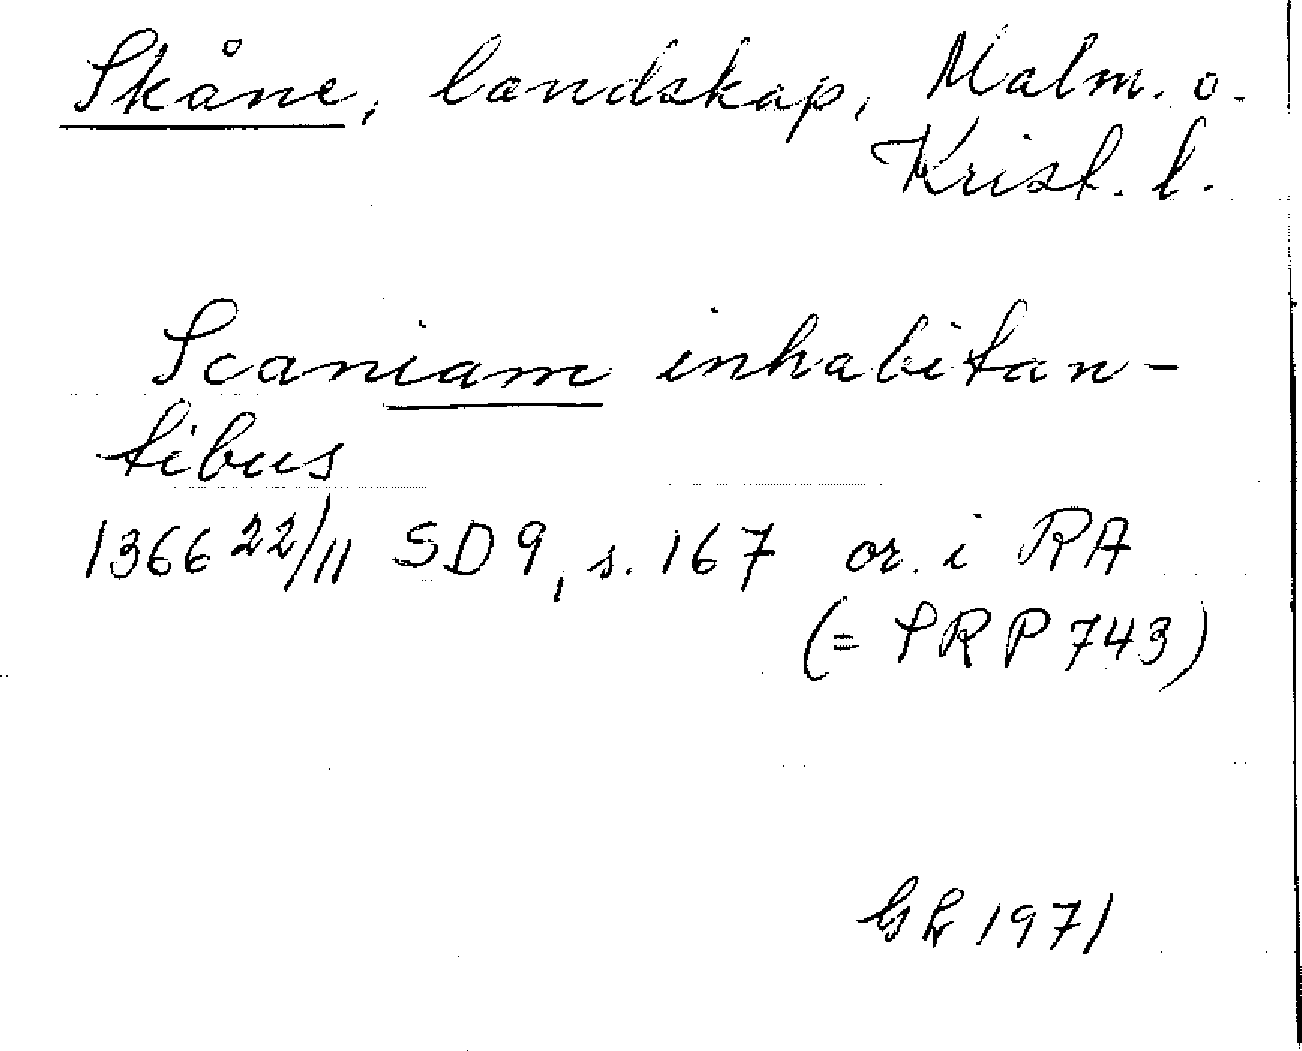 Skåne, landskap, Malm. o.
Krist. l.
Scaniam inhabitan-
tibus
1366 22/11 SD 9, s. 167 or. i RA
(= SRP 743)
1971